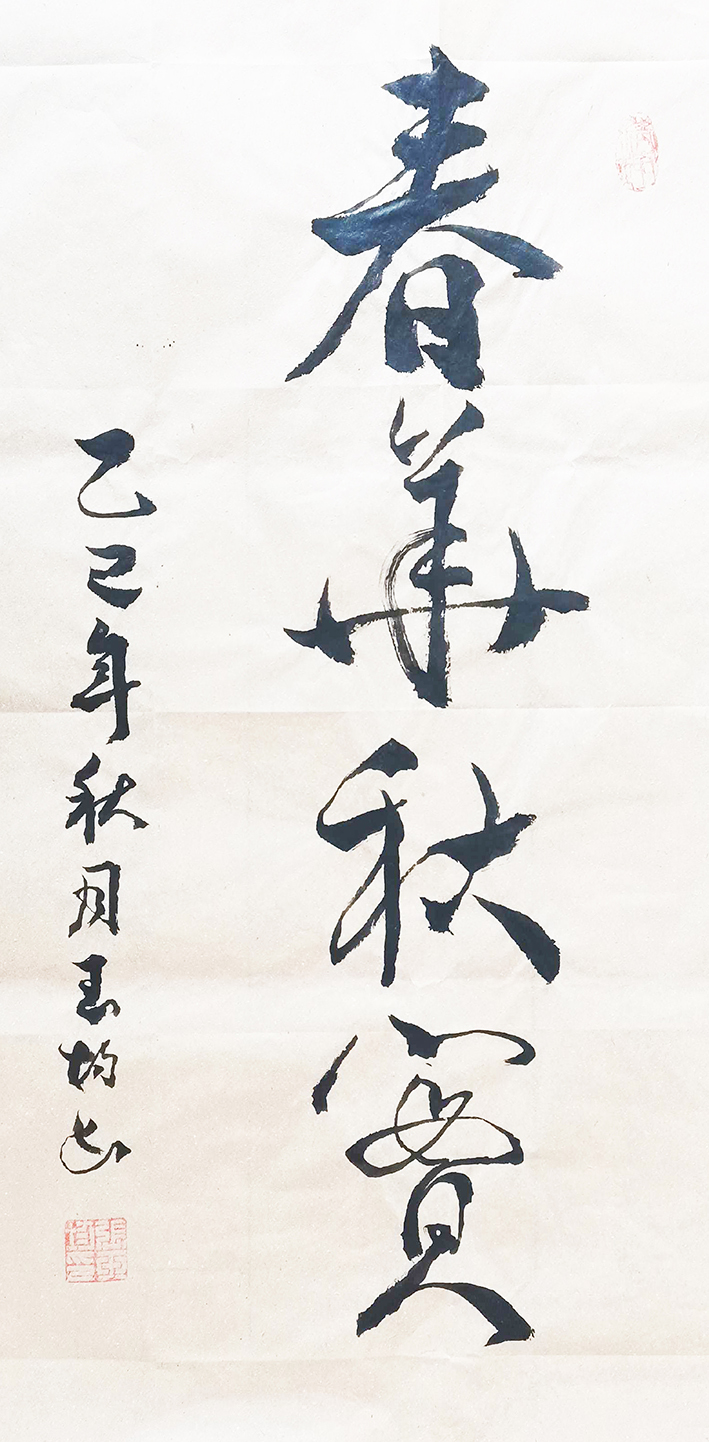 春華秋實
乙巳年秋月玉均书